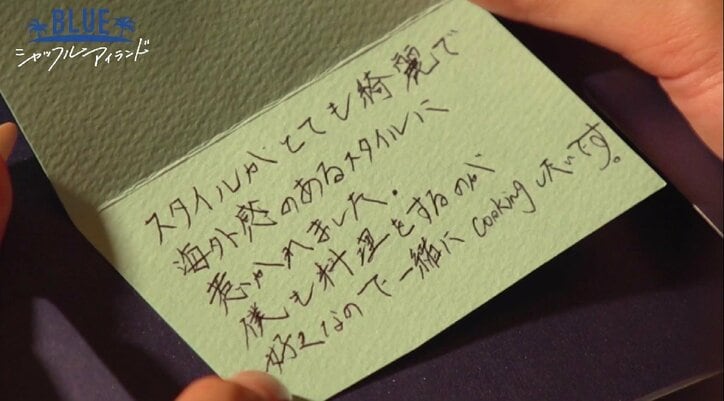 BLUE
シャッフルアイランド
スタイルがとても綺麗で
海外感のあるスタイルに
惹かれました。
僕も料理をするのが
好きなので一緒にcookingしたいです。